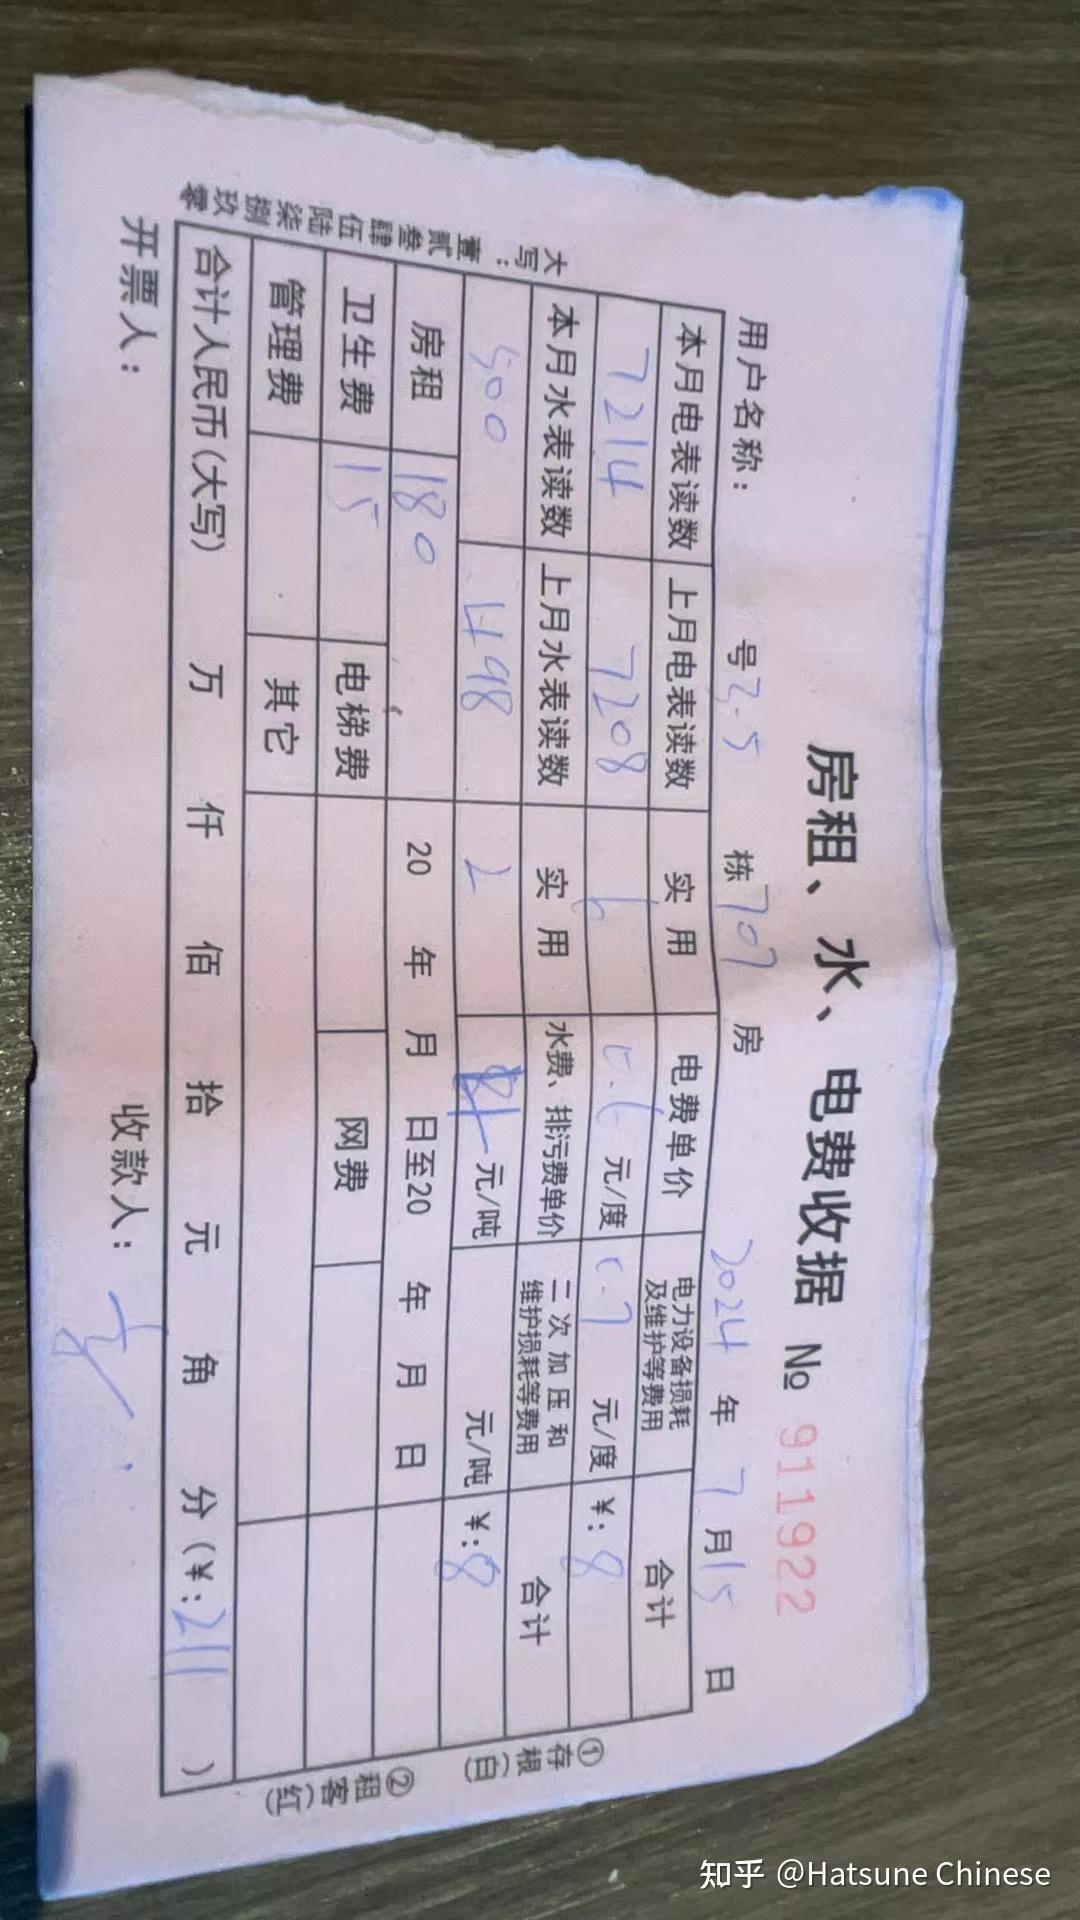 房租、水、电费收据 № 911922
用户名称： 号2.5 栋707 房 2024 年 7 月15 日
本月电表读数 上月电表读数 实用 电费单价 电力设备损耗及维护等费用 合计
7214 7208 6 元/度 0.7 元/度 ￥:8
本月水表读数 上月水表读数 实用 水费、排污费单价 二次加压和维护损耗等费用 合计
500 498 2 元/吨 元/吨 ￥:8
房租 180 20 年 月 日至20 年 月 日
卫生费 15 电梯费 网费
管理费 其它
合计人民币(大写) 万 仟 佰 拾 元 角 分(￥:211 )
开票人： 收款人：
大写：壹贰叁肆伍陆柒捌玖零
①存根(白)
②租客(红)
知乎 @Hatsune Chinese